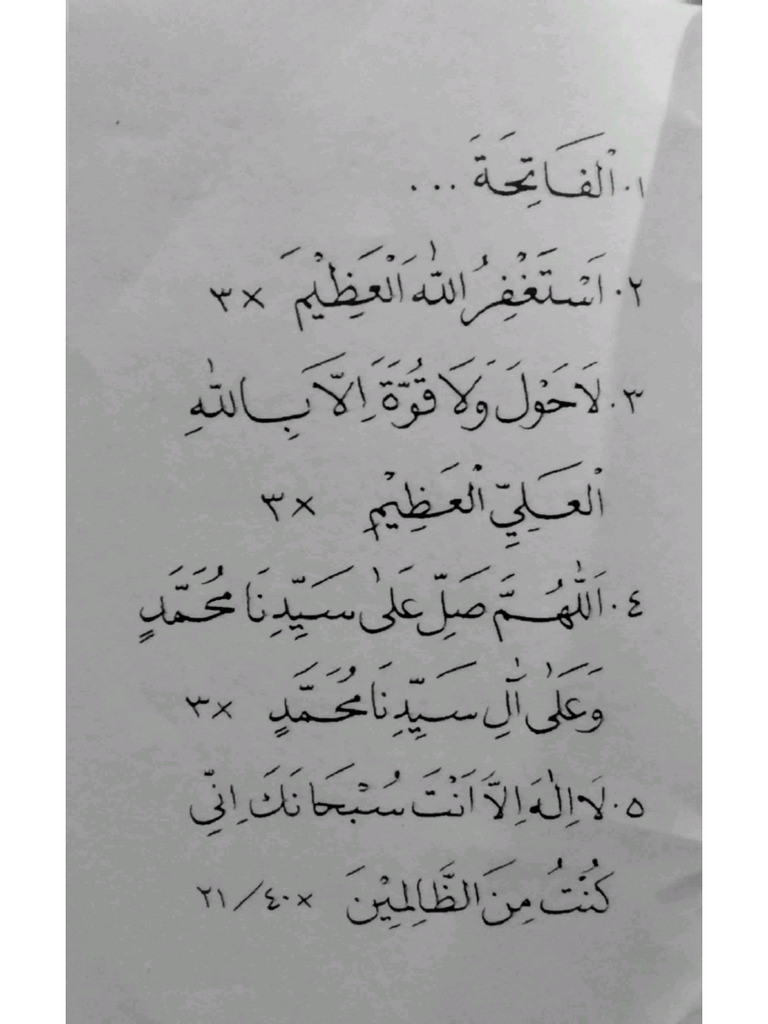 ١. اَلْفَاتِحَةَ ...
٢. اَسْتَغْفِرُ اللّٰهَ الْعَظِيْمَ ×٣
٣. لَاحَوْلَ وَلَا قُوَّةَ اِلَّا بِاللّٰهِ
الْعَلِيِّ الْعَظِيْمِ ×٣
٤. اَللّٰهُمَّ صَلِّ عَلٰى سَيِّدِنَا مُحَمَّدٍ
وَعَلٰى اٰلِ سَيِّدِنَا مُحَمَّدٍ ×٣
٥. لَا اِلٰهَ اِلَّا اَنْتَ سُبْحَانَكَ اِنِّي
كُنْتُ مِنَ الظَّالِمِيْنَ ×٤٠/٢١